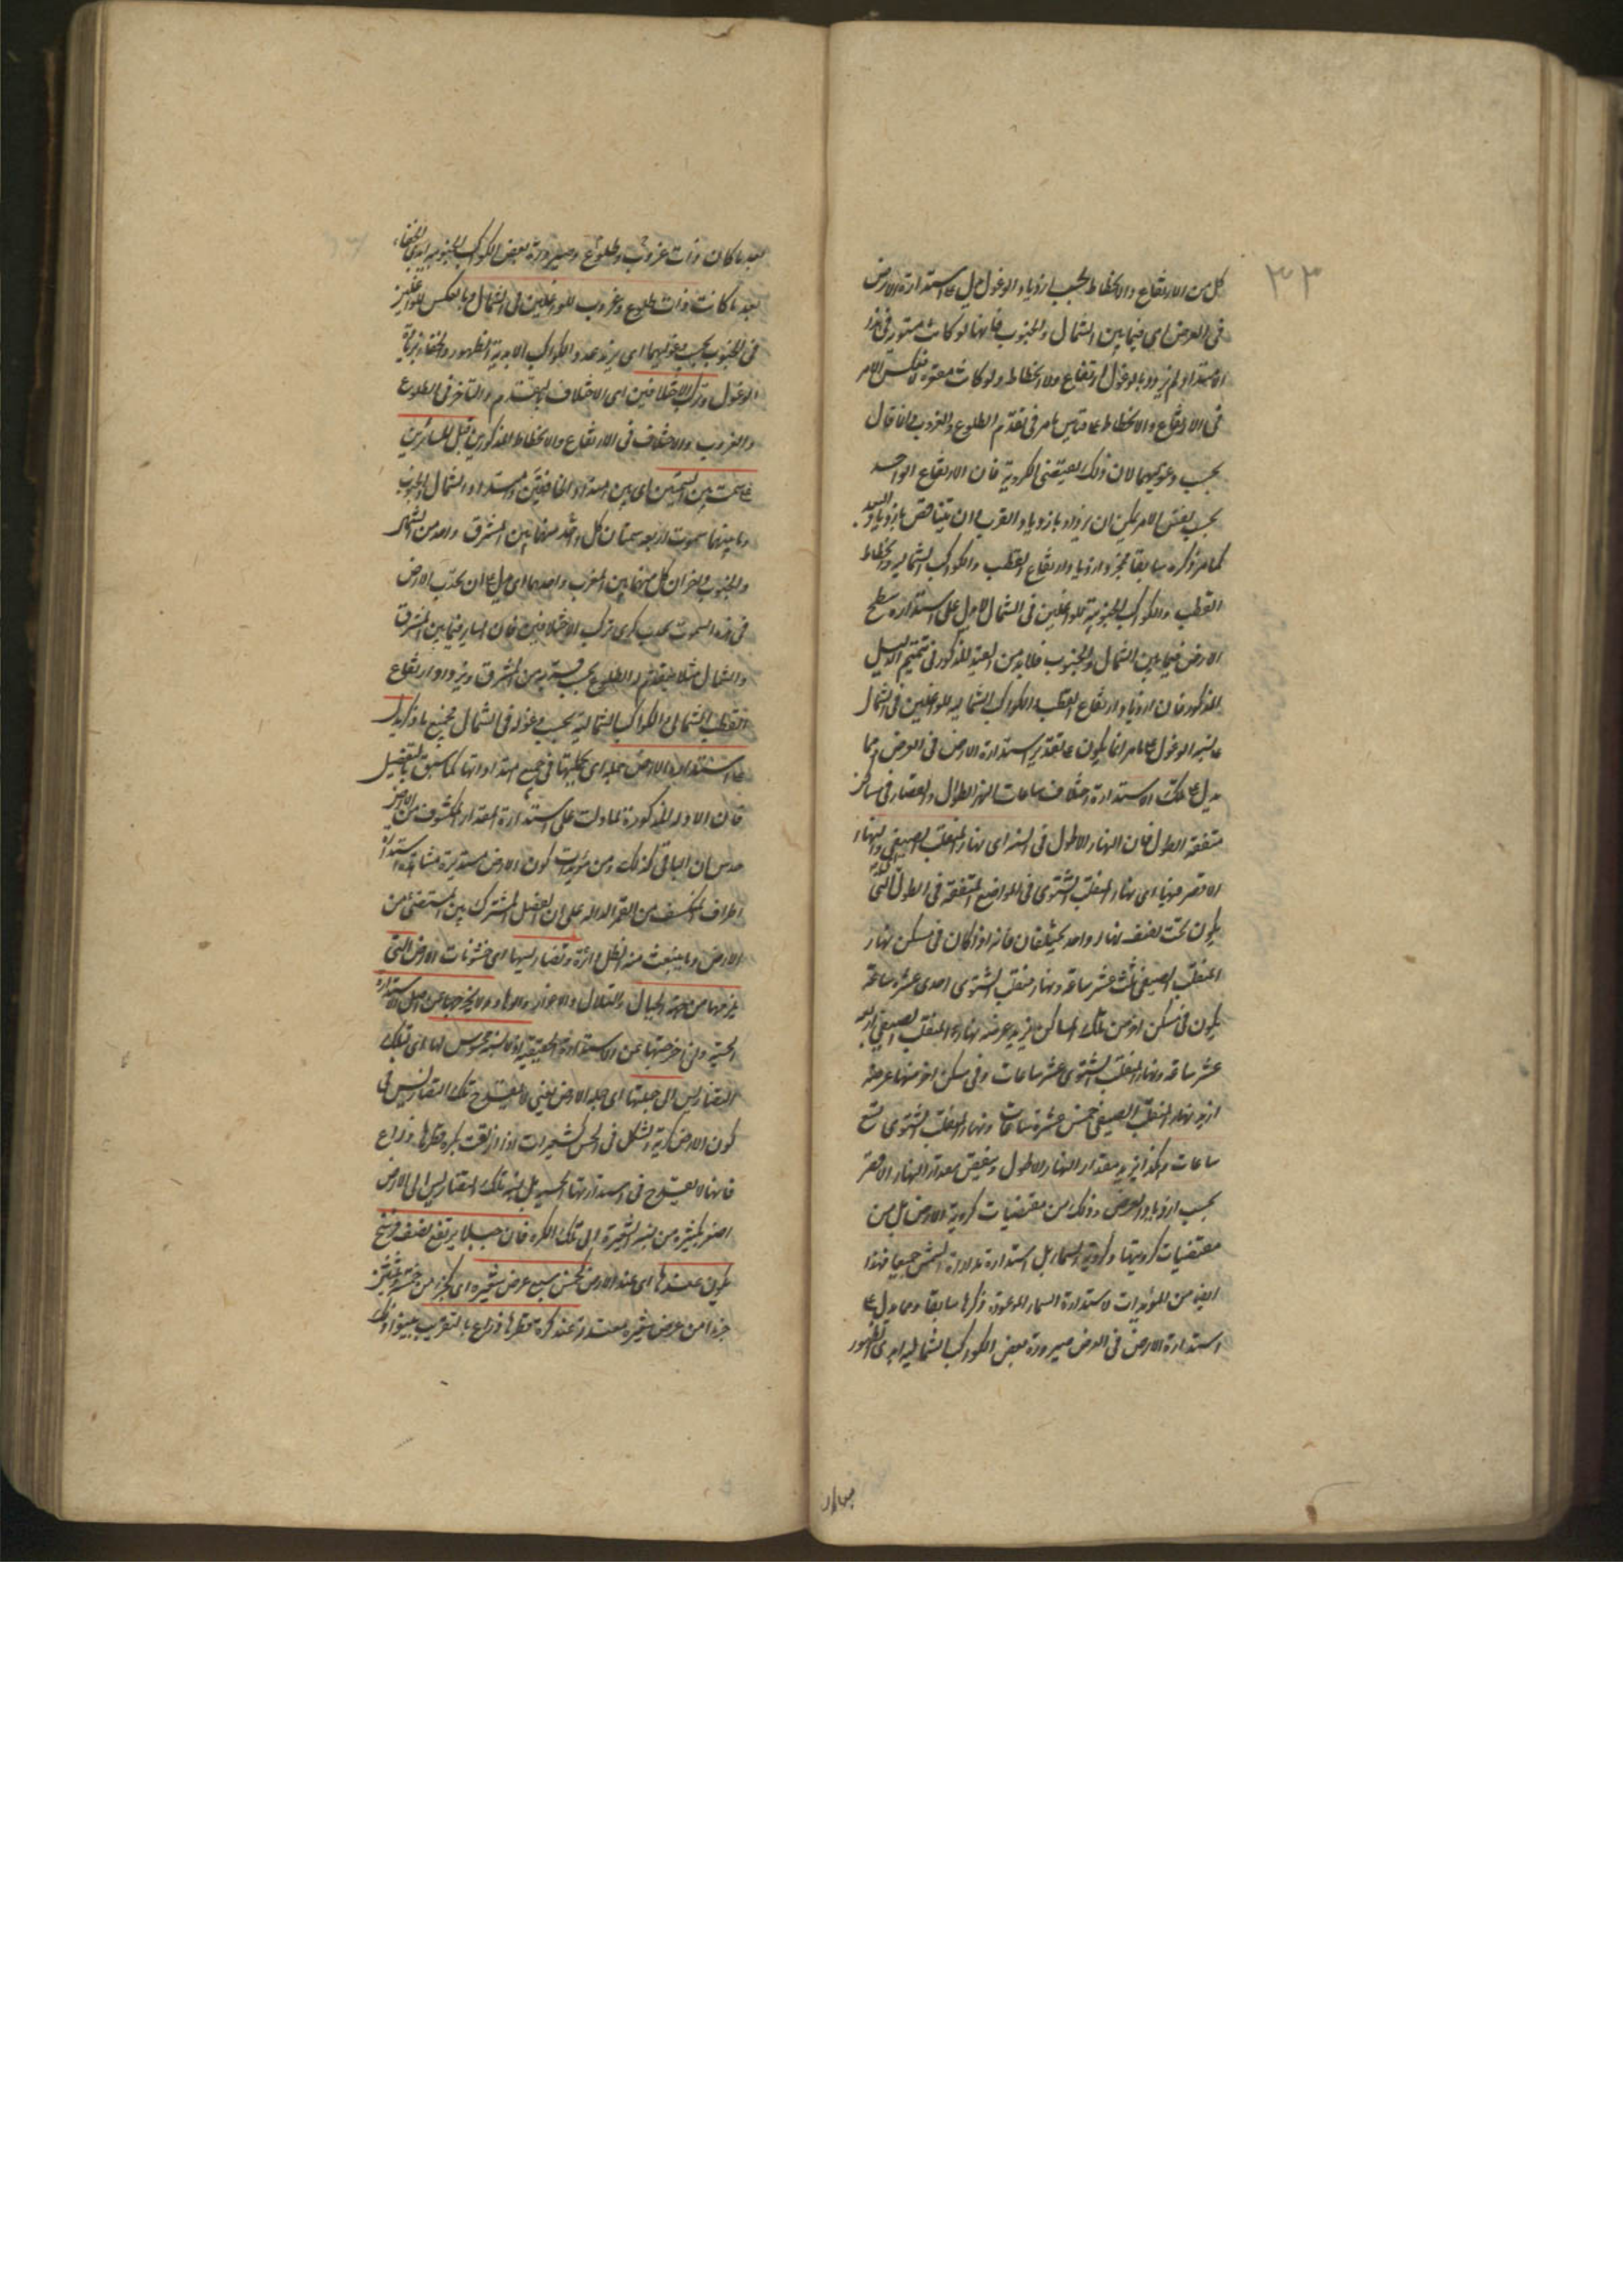 ٣٣
كل من الارتفاع والانحطاط بحسب ازدياد الوغول دل على استدارة الارض
فى العرض اى فيما بين الشمال والجنوب فانها لو كانت مستوية فى هذا
الامتداد لم يزدد بالوغول ارتفاع ولا انحطاط ولو كانت مقعرة لانعكس الامر
فى الارتفاع والانحطاط على قياس ما مر فى تقدم الطلوع والغروب قال
بحسب وغوليهما لان ذلك يقتضى الكروية فان الارتفاع الواحد
بحسب نفس الامر يمكن ان يزداد بازدياد القرب وان يتناقص بازدياد البعد
كما مر ذكره سابقا فمجرد ازدياد ارتفاع القطب والكواكب الشمالية وانحطاط
القطب والكواكب الجنوبية للواغلين فى الشمال لا يدل على استدارة سطح
الارض فيما بين الشمال والجنوب فلا بد من القيد المذكور فى تتميم الدليل
المذكور فان ازدياد ارتفاع القطب والكواكب الشمالية للواغلين فى الشمال
على نسبة الوغول على ما مر انما يكون على تقدير استدارة الارض فى العرض ومما
يدل على تلك الاستدارة اختلاف ساعات النهر الطوال والقصار فى مساكن
متفقة الطول فان النهار الاطول فى السنة اى نهار المنقلب الصيفى والنهار
الاقصر فيها اى نهار المنقلب الشتوى فى المواضع المتفقة فى الطول التى
يكون تحت نصف نهار واحد يختلفان فانه اذا كان فى مسكن نهار
المنقلب الصيفى ثلث عشر ساعة ونهار منقلب الشتوى احدى عشرة ساعة
يكون فى مسكن اخر من تلك المساكن يزيد عرضه نهار المنقلب الصيفى اربع
عشر ساعة ونهار المنقلب الشتوى عشر ساعات وفى مسكن اخر منها عرضه
ازيد نهار المنقلب الصيفى خمس عشرة ساعات ونهار المنقلب الشتوى تسع
ساعات وهكذا يزيد مقدار النهار الاطول وينقص مقدار النهار الاقصر
بحسب ازدياد العرض وذلك من مقتضيات كروية الارض بل من
مقتضيات كرويتها وكروية السماء بل استدارة مدارة الشمس جميعا فهذا
ايضا من المؤيدات لاستدارة السماء الموعود ذكرها سابقا ومما دل على
استدارة الارض فى العرض صيرورة بعض الكواكب الشمالية ابدى الظهور
بعد ما كان ذات غروب وطلوع وصيرورة بعض الكواكب الجنوبية ابدى الخفاء
بعد ما كانت ذات طلوع وغروب للواغلين فى الشمال وبالعكس للواغلين
فى الجنوب بحسب وغوليهما اى يزيد عدد الكواكب الابدية الظهور والخفاء بزيادة
الوغول وتركب الاختلافين اى الاختلاف بالتقدم والتاخر فى الطلوع
والغروب والاختلاف فى الارتفاع والانحطاط المذكورين قبل للسائرين
على سمت بين السمتين اى بين امتداد الخافقين وامتداد الشمال والجنوب
وما بينهما سموت اربعة سمتان كل واحد منهما بين المشرق واحد من الشمال
والجنوب واخران كل منهما بين المغرب واحدهما اى يدل على ان تحدب الارض
فى هذه السموت تحدب كرى تركب الاختلافين فان السائر فيما بين المشرق
والشمال مثلا يتقدم له الطلوع بحسب قربه من المشرق ويزداد ارتفاع
القطب الشمالى والكواكب الشمالية بحسب وغوله فى الشمال فجميع ما ذكر يدل
على استدارة الارض جملة اى بكليتها فى جميع امتداداتها كما سبق بالتفصيل
فان الادلة المذكورة لما دلت على استدارة المقدار المكشوف من الارض
حدس ان الباقى كذلك ومن مؤيدات كون الارض مستديرة مشابهة استدارة
اطراف المنكسف من القمر الدالة على ان الفصل المشترك بين المستضئ من
الارض وما ينبعث منه الظل دائرة وتضاريسها اى خشونات الارض التى
يلزمها من جهة الجبال والتلال والاغوار والوهاد لا يخرجها عن اصل الاستدارة
الحسية وان اخرجتها عن الاستدارة الحقيقية اذ لا نسبة محسوس لها اى لتلك
التضاريس الى جملتها اى جملة الارض يعنى لا يقدح تلك التضاريس فى
كون الارض كرية الشكل فى الحس كشعيرات اذا الزقت بكرة قطرها ذراع
فانها لا يقدح فى استدارتها الحسية بل نسبة تلك التضاريس الى الارض
اصغر بكثير من نسبة الشعيرة الى تلك الكرة فان جبلا يرتفع نصف فرسخ
يكون عندها اى عند الارض كخمس سبع عرض شعيرة اى كجزء من خمسة وثلثين
جزءا من عرض شعيرة معتدلة عند كرة قطرها ذراع بالتقريب